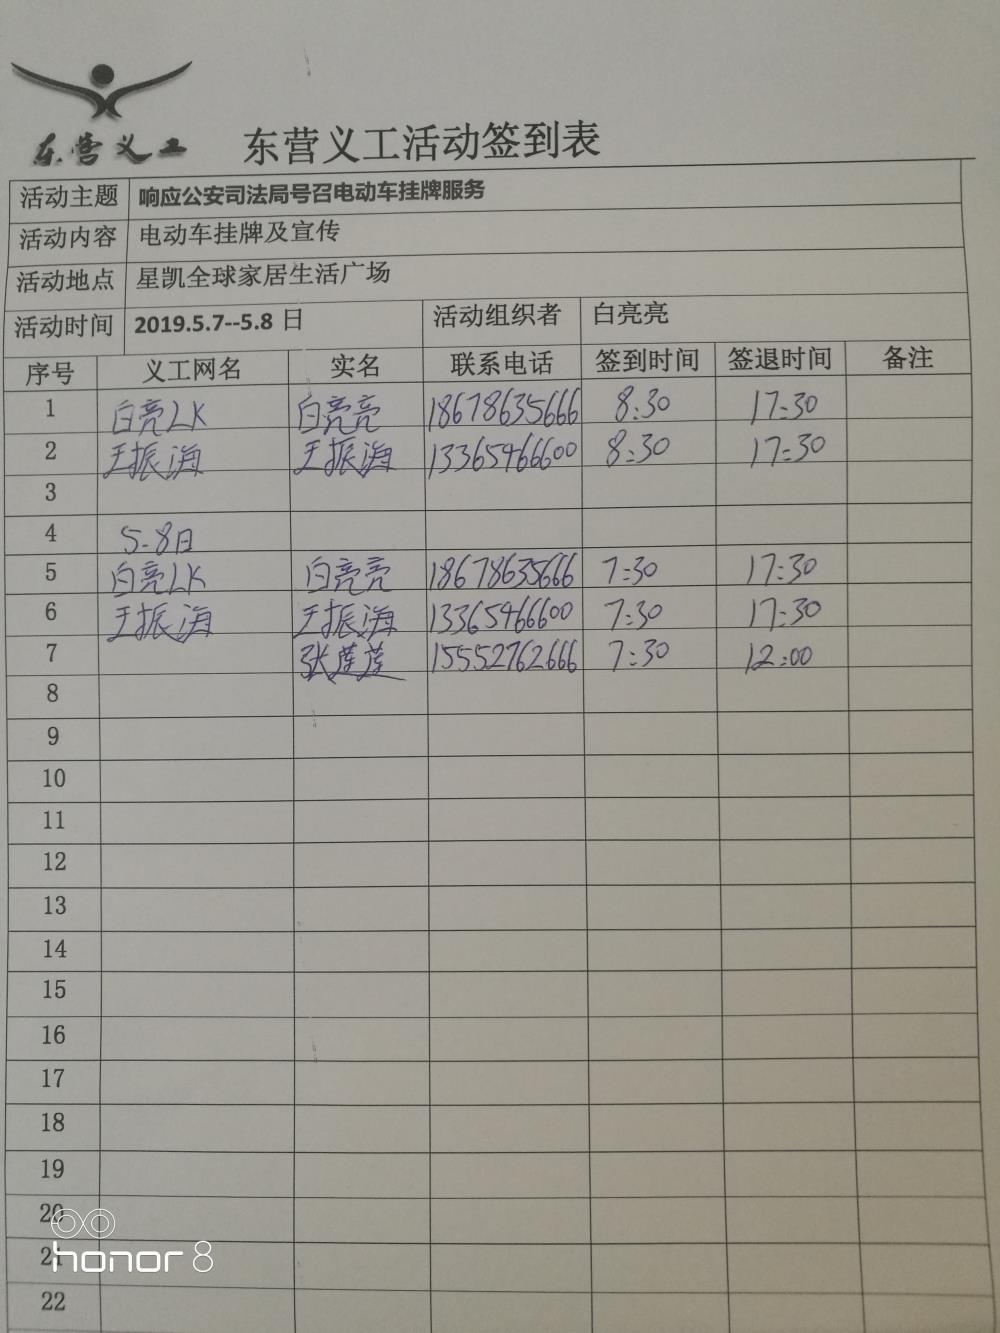 东营义工
东营义工活动签到表
活动主题 响应公安司法局号召电动车挂牌服务
活动内容 电动车挂牌及宣传
活动地点 星凯全球家居生活广场
活动时间 2019.5.7--5.8 日 活动组织者 白亮亮
序号 义工网名 实名 联系电话 签到时间 签退时间 备注
1 白亮LK 白亮亮 18678635666 8:30 17:30
2 王振海 王振海 13365466600 8:30 17:30
3
4 5-8日
5 白亮LK 白亮亮 18678635666 7:30 17:30
6 王振海 王振海 13365466600 7:30 17:30
7 张莲莲 15552762666 7:30 12:00
8
9
10
11
12
13
14
15
16
17
18
19
20
21
22
honor 8